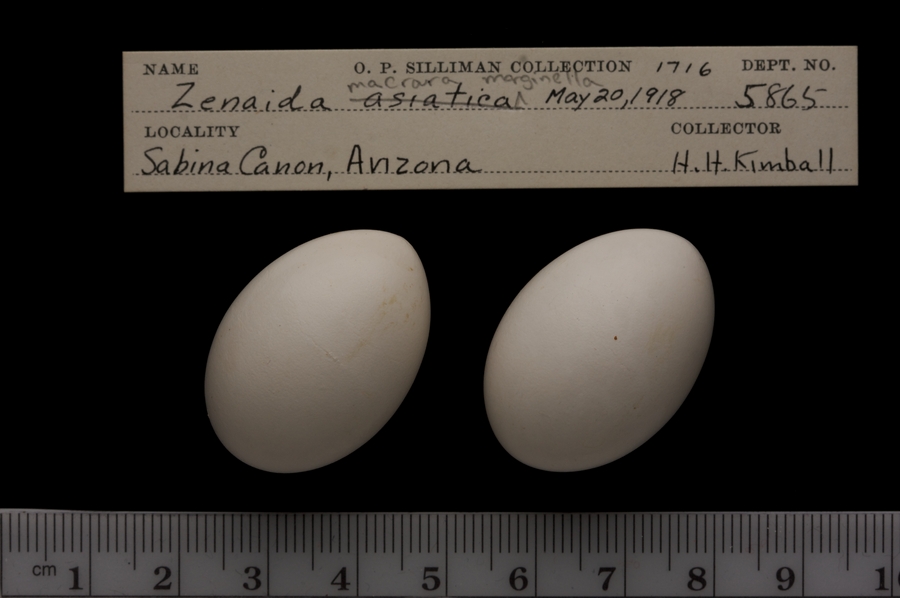 NAME O. P. SILLIMAN COLLECTION 1716 DEPT. NO.
macroura marginella
Zenaida asiatica May 20, 1918 5865
LOCALITY COLLECTOR
Sabina Canon, Arizona H. H. Kimball
cm 1 2 3 4 5 6 7 8 9